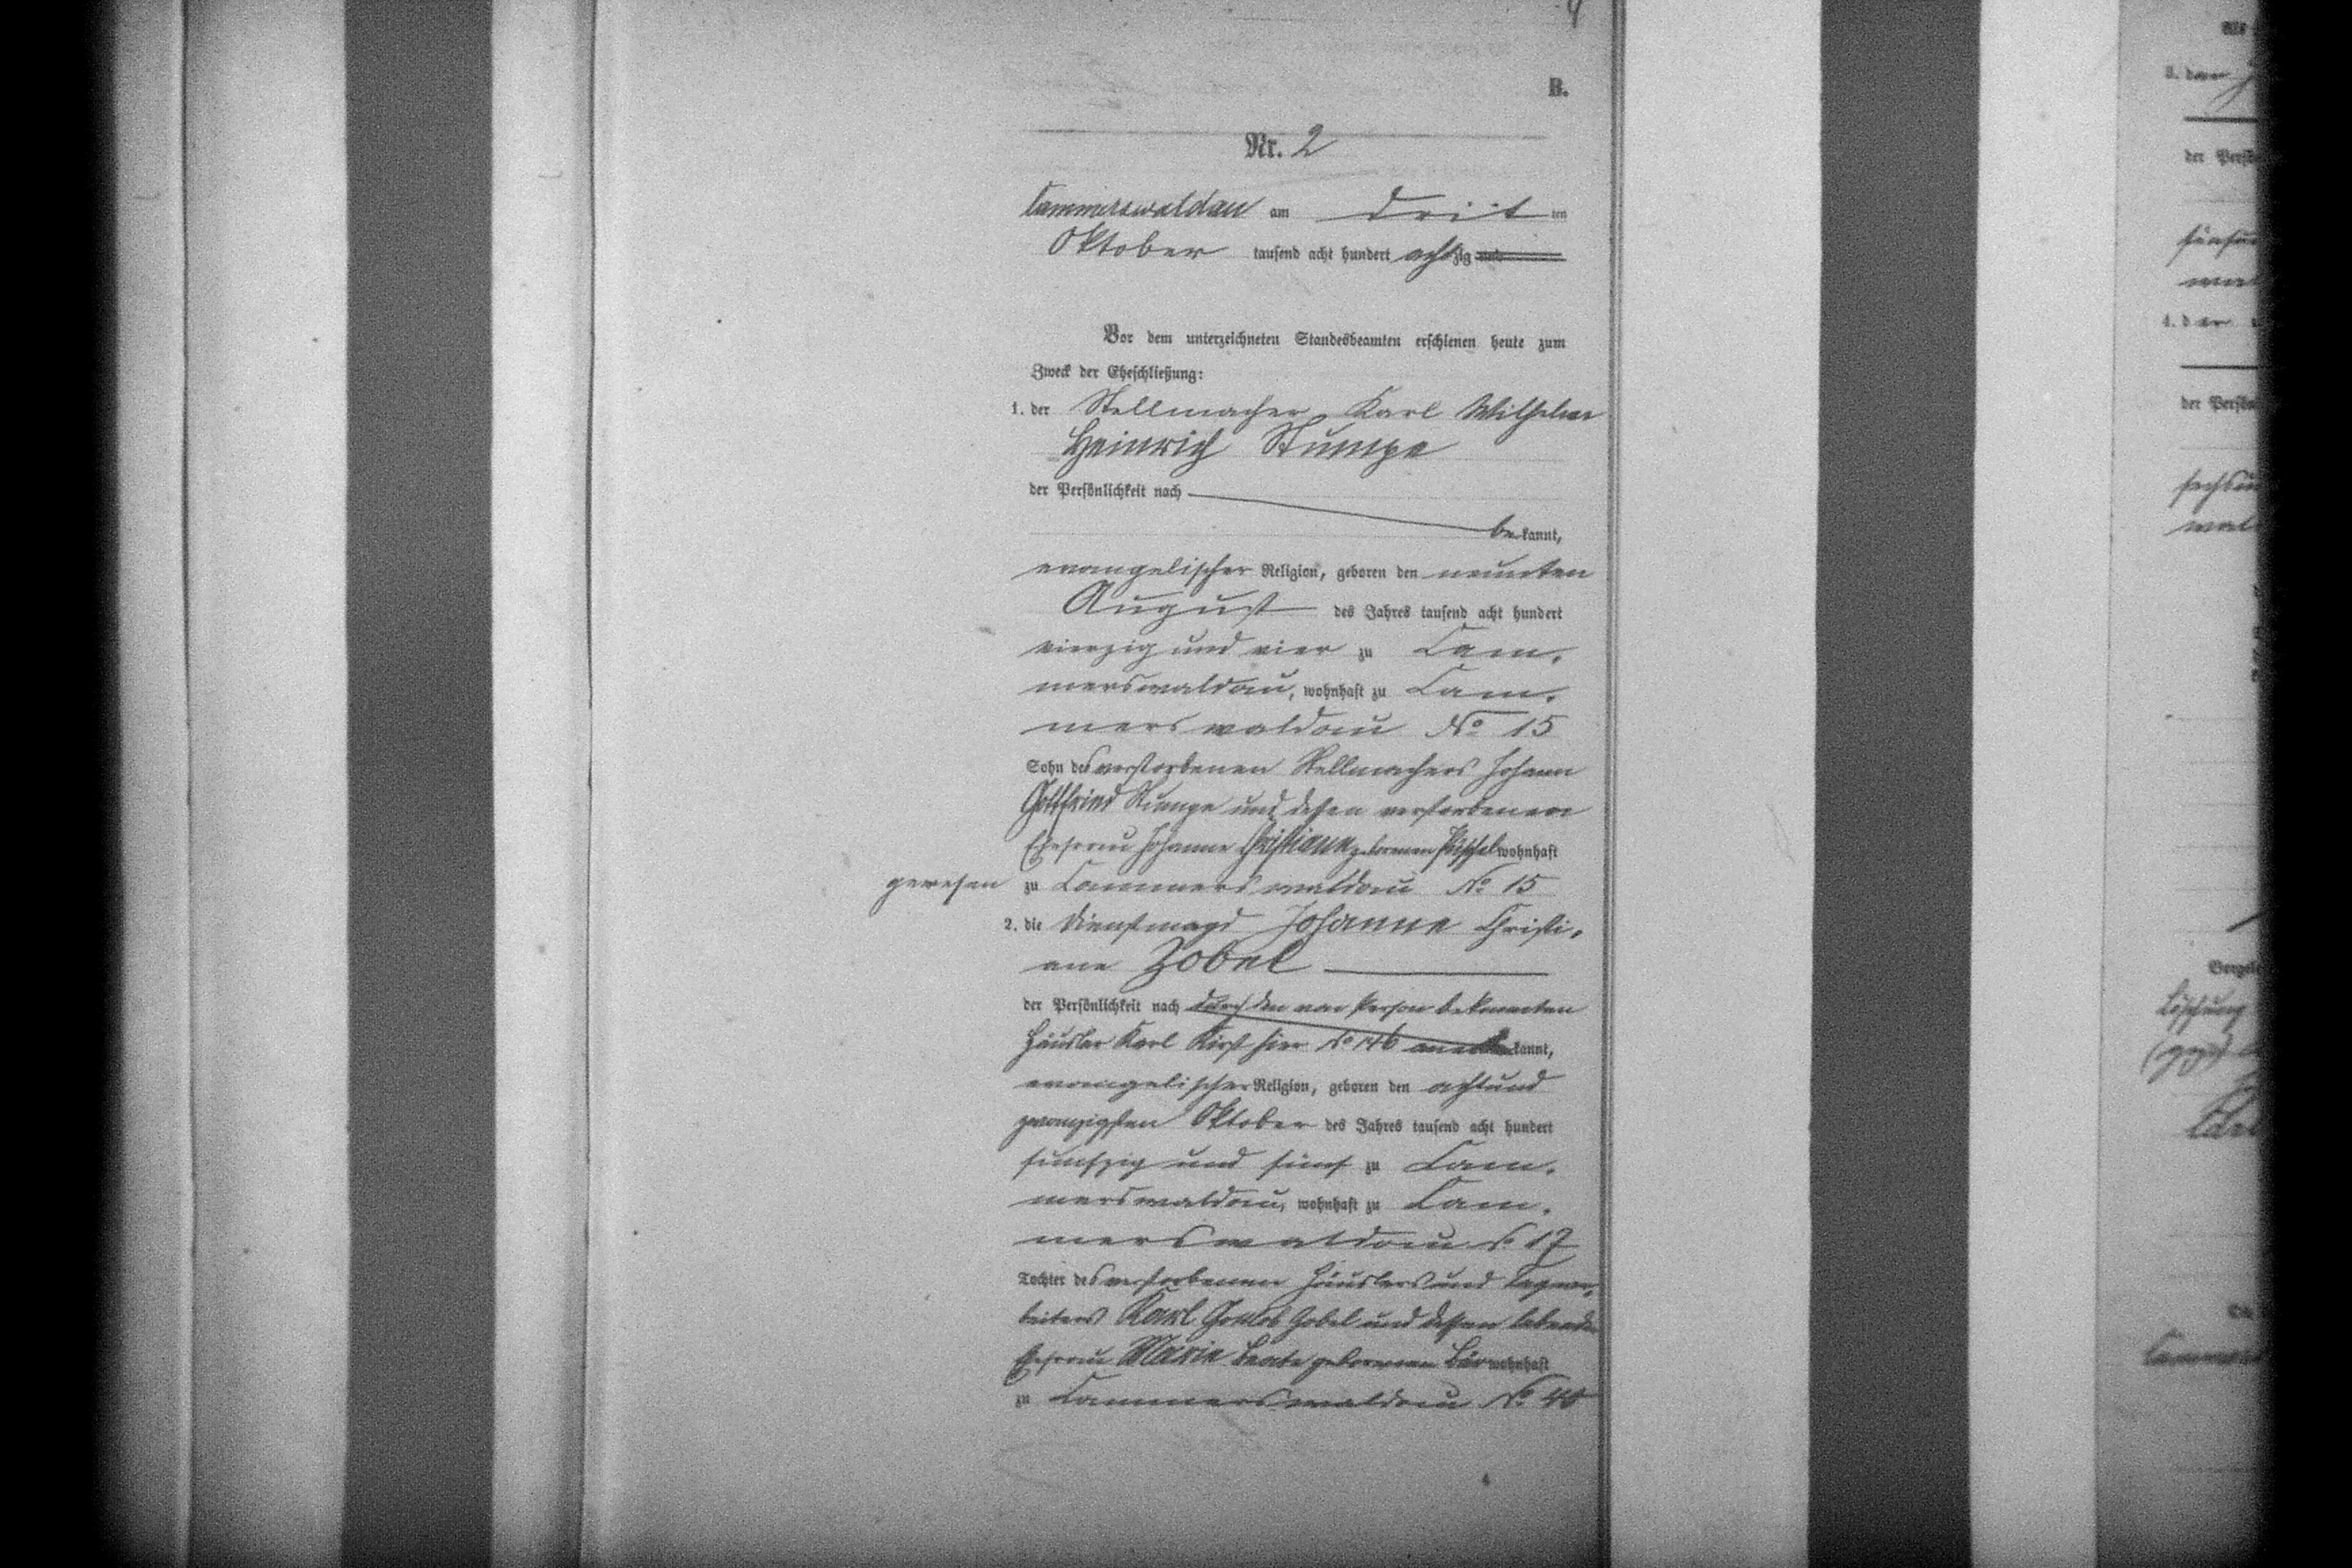 B.
Nr. 2
Cammerswaldau am dritten
Oktober tausend acht hundert achtzig und
Vor dem unterzeichneten Standesbeamten erschienen heute zum
Zweck der Eheschließung:
1. der Stellmacher Karl Wilhelm
Heinrich Stumpe
der Persönlichkeit nach
bekannt,
evangelischer Religion, geboren den neunten
August des Jahres tausend acht hundert
vierzig und vier zu Cam-
merswaldau, wohnhaft zu Cam-
merswaldau No 15
Sohn des verstorbenen Stellmachers Johann
Gottfried Stumpe und dessen verstorbenen
Ehefrau Johanne Christiane geborenen Püschel wohnhaft
gewesen zu Cammerswaldau No 15
2. die Dienstmagd Johanne Christi-
ane Zobel
der Persönlichkeit nach durch den von Person bekannten
Häusler Karl Kirst hier No 146 anerkannt,
evangelischer Religion, geboren den achtund
zwanzigsten Oktober des Jahres tausend acht hundert
fünfzig und fünf zu Cam-
merswaldau, wohnhaft zu Cam-
merswaldau No 17
Tochter des verstorbenen Häuslers und Tagear-
beiters Karl Gottlob Zobel und dessen lebenden
Ehefrau Marie Beate geborenen Bär wohnhaft
zu Cammerswaldau No 46
der Pers
der Pers